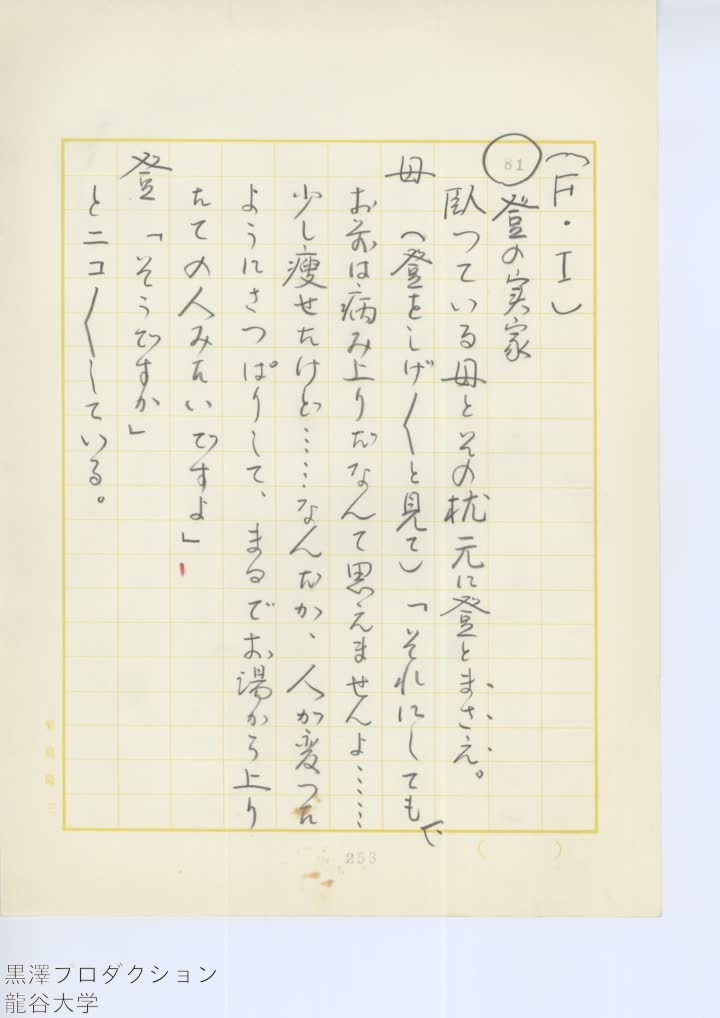 (F・I)
81 登の実家
臥つている母とその枕元に登とまさえ。
母 (登をしげ〱と見て)「それにしても
お前は病み上りだなんて思えませんよ……
少し痩せたけど……なんだか、人が変つた
ようにさつぱりして、まるでお湯から上り
たての人みたいですよ」
登「そうですか」
とニコ〱している。
253
黒澤プロダクション
龍谷大学